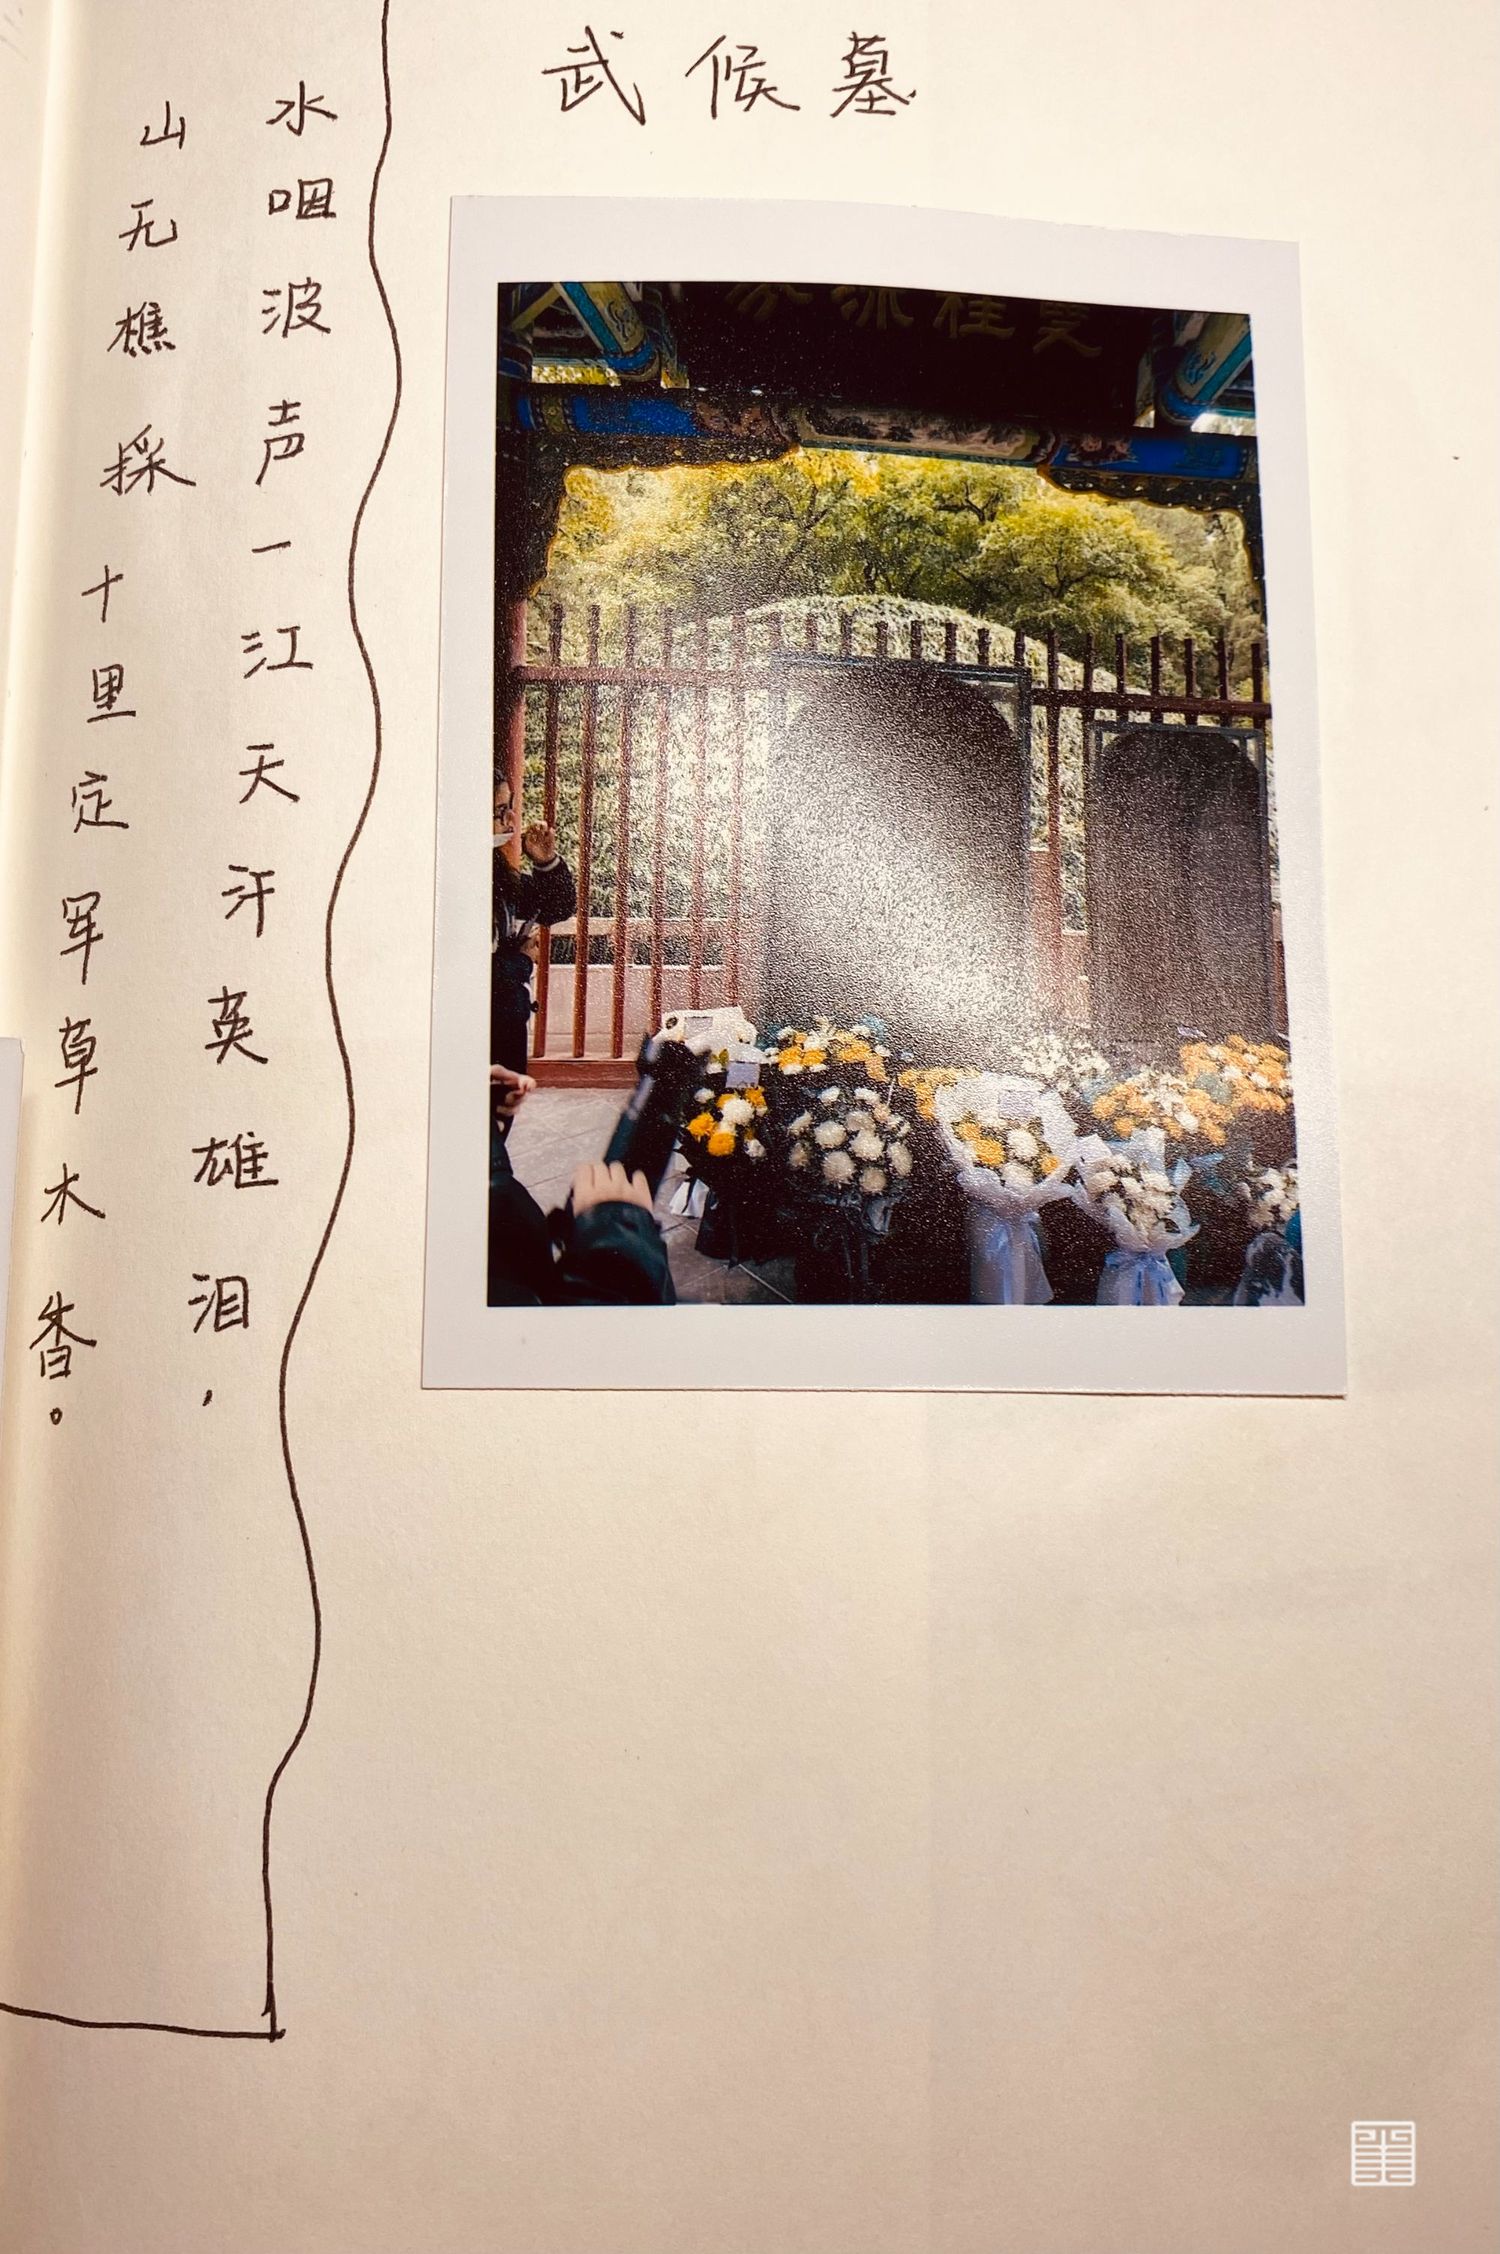 武候墓
水咽波声一江天汗英雄泪，
山无樵採十里定军草木香。